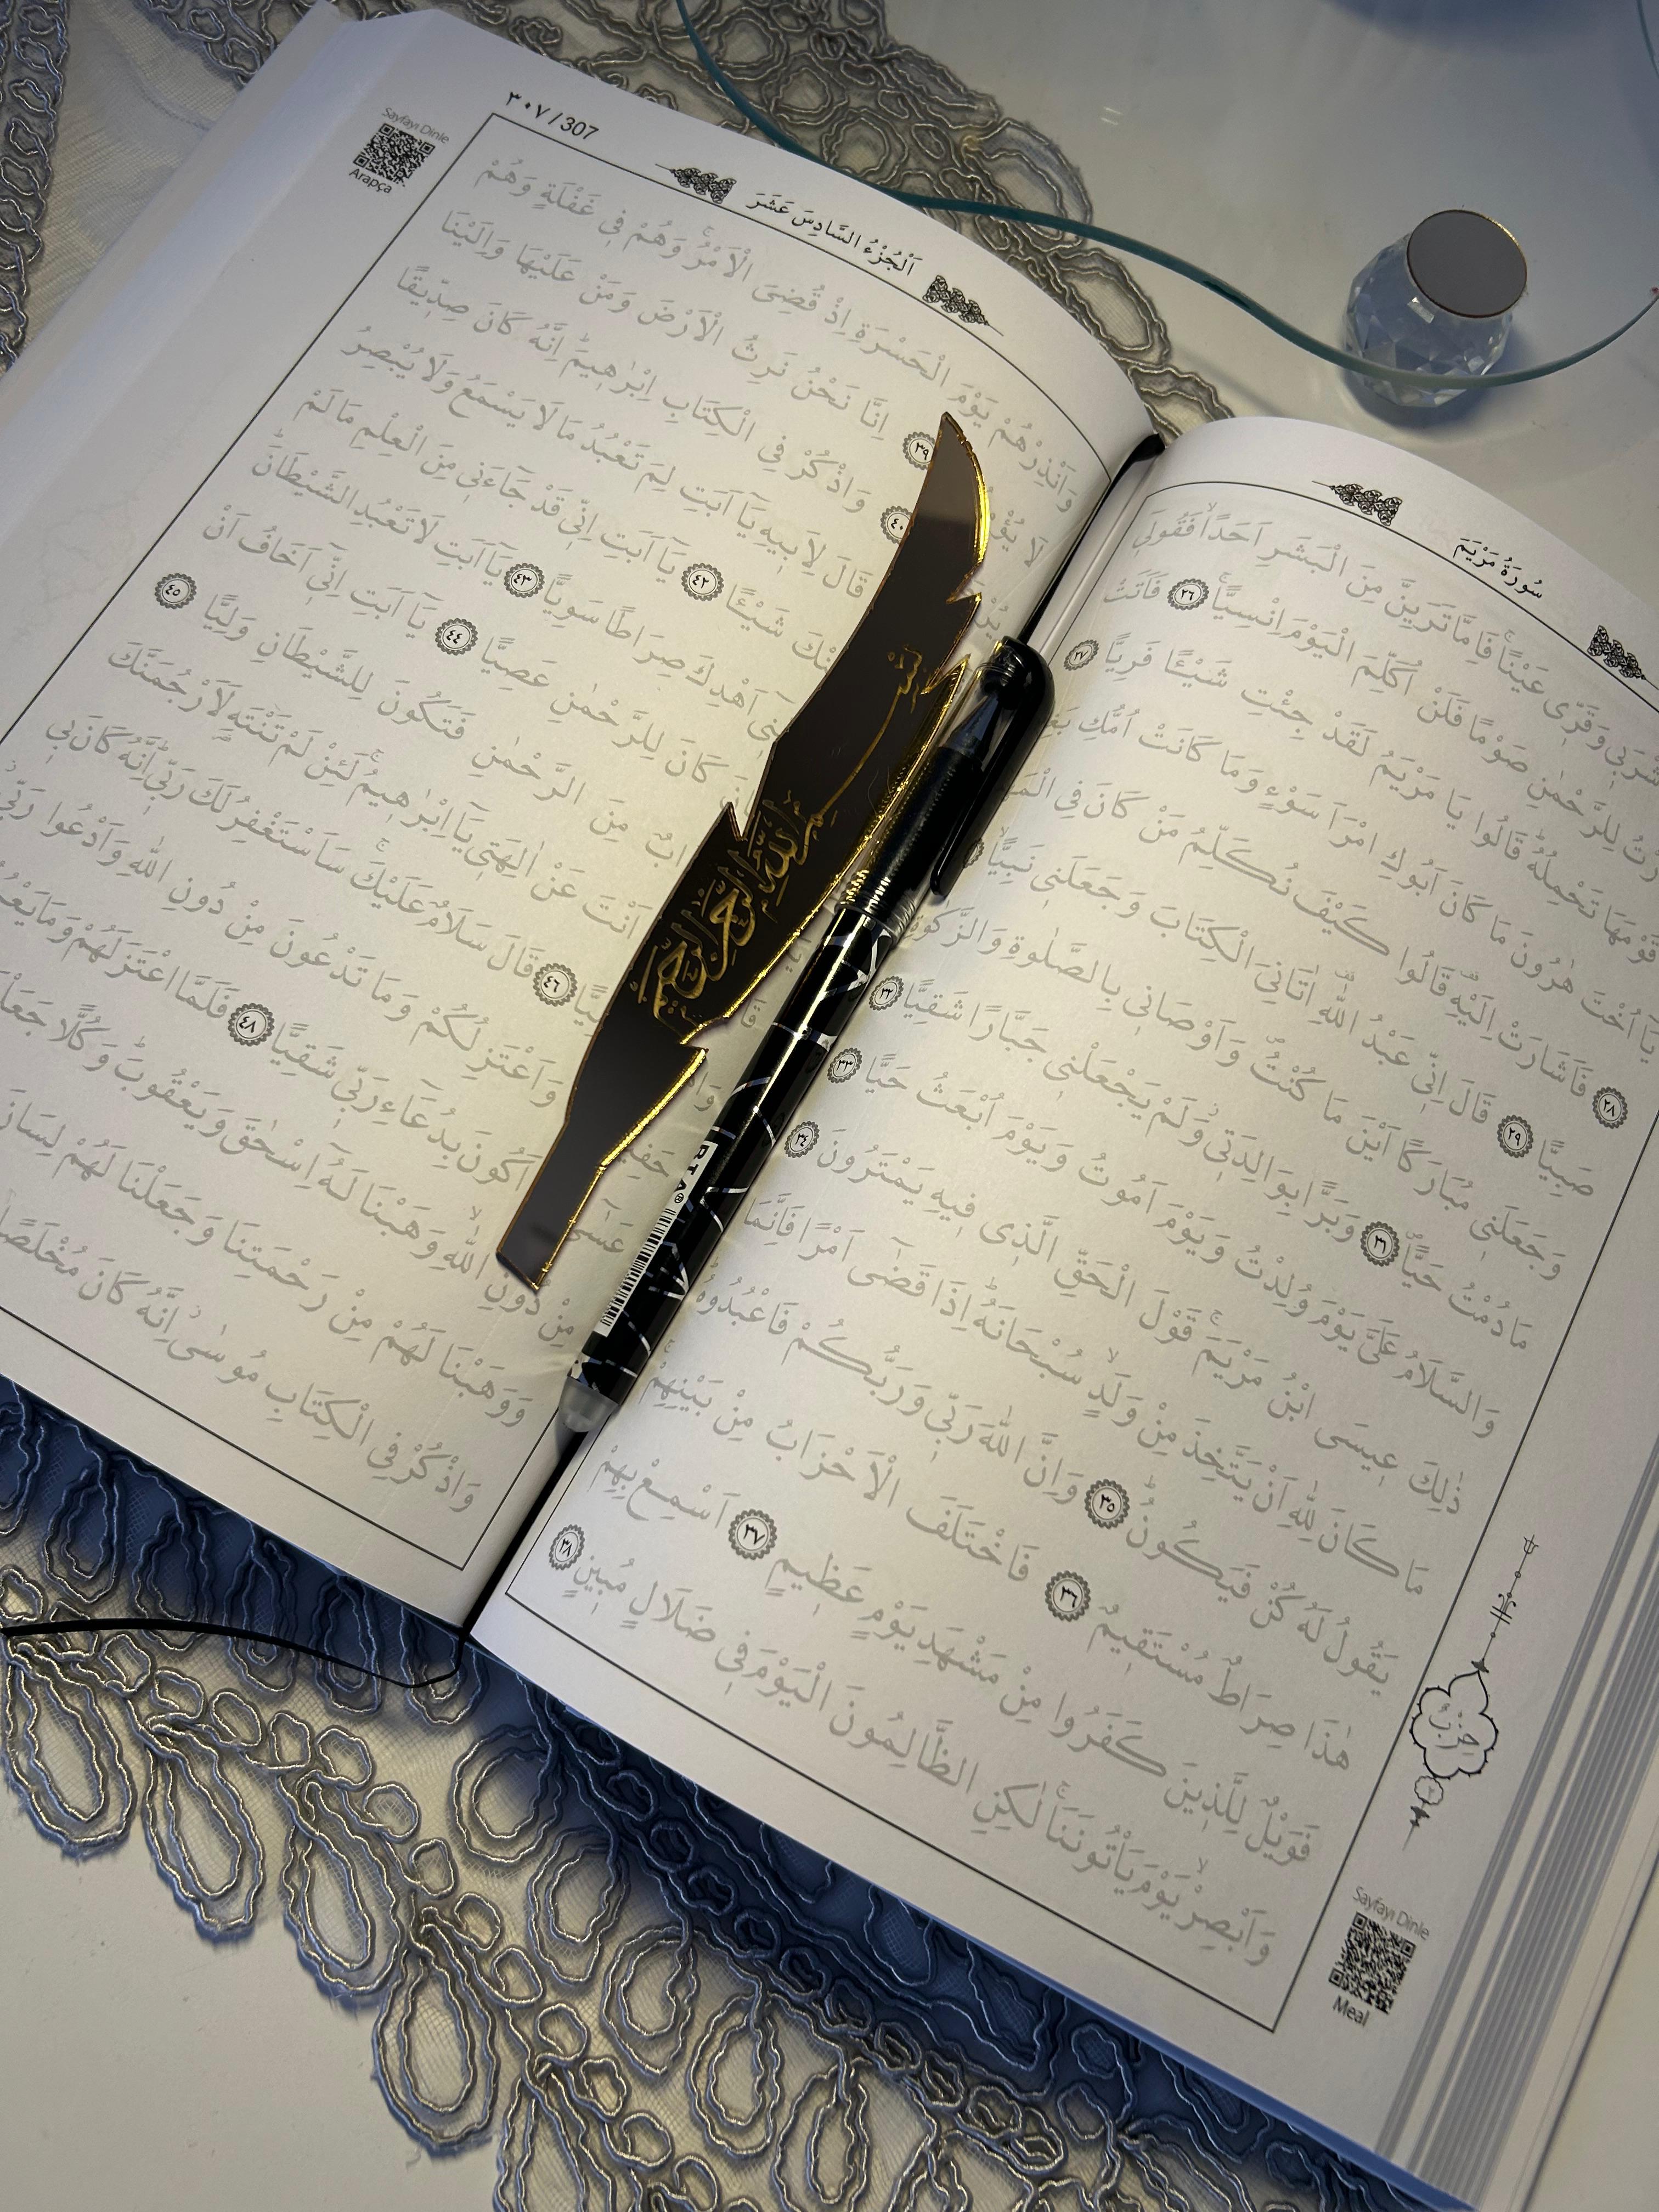 سُورَةُ مَرْيَمَ
وَقَرِّي عَيْنًاۚ فَاِمَّا تَرَيِنَّ مِنَ الْبَشَرِ اَحَدًاۙ فَقُولِي
لِلرَّحْمٰنِ صَوْمًا فَلَنْ اُكَلِّمَ الْيَوْمَ اِنْسِيًّاۚ ٢٦ فَاَتَتْ
قَوْمَهَا تَحْمِلُهُۜ قَالُوا يَا مَرْيَمُ لَقَدْ جِئْتِ شَيْـًٔا فَرِيًّا ٢٧
يَٓا اُخْتَ هٰرُونَ مَا كَانَ اَبُوكِ امْرَاَ سَوْءٍ وَمَا كَانَتْ اُمُّكِ
٢٨ فَاَشَارَتْ اِلَيْهِۜ قَالُوا كَيْفَ نُكَلِّمُ مَنْ كَانَ فِي
صَبِيًّا ٢٩ قَالَ اِنِّي عَبْدُ اللّٰهِ اٰتَانِيَ الْكِتَابَ وَجَعَلَنِي نَبِيًّا
وَجَعَلَنِي مُبَارَكًا اَيْنَ مَا كُنْتُ وَاَوْصَانِي بِالصَّلٰوةِ وَالزَّكٰوةِ
مَا دُمْتُ حَيًّا ٣١ وَبَرًّا بِوَالِدَتِي وَلَمْ يَجْعَلْنِي جَبَّارًا شَقِيًّا ٣٢
وَالسَّلَامُ عَلَيَّ يَوْمَ وُلِدْتُ وَيَوْمَ اَمُوتُ وَيَوْمَ اُبْعَثُ حَيًّا ٣٣
ذٰلِكَ عِيسَى ابْنُ مَرْيَمَۚ قَوْلَ الْحَقِّ الَّذِي فِيهِ يَمْتَرُونَ ٣٤
مَا كَانَ لِلّٰهِ اَنْ يَتَّخِذَ مِنْ وَلَدٍۙ سُبْحَانَهُۜ اِذَا قَضٰٓى اَمْرًا فَاِنَّمَا
يَقُولُ لَهُ كُنْ فَيَكُونُۜ ٣٥ وَاِنَّ اللّٰهَ رَبِّي وَرَبُّكُمْ فَاعْبُدُوهُۜ
هٰذَا صِرَاطٌ مُسْتَقِيمٌ ٣٦ فَاخْتَلَفَ الْاَحْزَابُ مِنْ بَيْنِهِمْۚ
فَوَيْلٌ لِلَّذِينَ كَفَرُوا مِنْ مَشْهَدِ يَوْمٍ عَظِيمٍ ٣٧ اَسْمِعْ بِهِمْ
وَاَبْصِرْۙ يَوْمَ يَأْتُونَنَاۚ لٰكِنِ الظَّالِمُونَ الْيَوْمَ فِي ضَلَالٍ مُبِينٍ ٣٨
حِزْب
Sayfayı Dinle
Meal
٣٠٧ / 307
اَلْجُزْءُ السَّادِسَ عَشَرَ
Sayfayı Dinle
Arapça
وَاَنْذِرْهُمْ يَوْمَ الْحَسْرَةِ اِذْ قُضِيَ الْاَمْرُۚ وَهُمْ فِي غَفْلَةٍ وَهُمْ
لَا ٣٩ اِنَّا نَحْنُ نَرِثُ الْاَرْضَ وَمَنْ عَلَيْهَا وَاِلَيْنَا
٤٠ وَاذْكُرْ فِي الْكِتَابِ اِبْرٰهِيمَۜ اِنَّهُ كَانَ صِدِّيقًا
قَالَ لِاَبِيهِ يَٓا اَبَتِ لِمَ تَعْبُدُ مَا لَا يَسْمَعُ وَلَا يُبْصِرُ
شَيْـًٔا ٤٢ يَٓا اَبَتِ اِنِّي قَدْ جَٓاءَنِي مِنَ الْعِلْمِ مَا لَمْ
اَهْدِكَ صِرَاطًا سَوِيًّا ٤٣ يَٓا اَبَتِ لَا تَعْبُدِ الشَّيْطَانَۜ
كَانَ لِلرَّحْمٰنِ عَصِيًّا ٤٤ يَٓا اَبَتِ اِنِّٓي اَخَافُ اَنْ
مِنَ الرَّحْمٰنِ فَتَكُونَ لِلشَّيْطَانِ وَلِيًّا ٤٥
اَنْتَ عَنْ اٰلِهَتِي يَٓا اِبْرٰهِيمُۚ لَئِنْ لَمْ تَنْتَهِ لَاَرْجُمَنَّكَ
٤٦ قَالَ سَلَامٌ عَلَيْكَۚ سَاَسْتَغْفِرُ لَكَ رَبِّيۜ اِنَّهُ كَانَ بِي
وَاَعْتَزِلُكُمْ وَمَا تَدْعُونَ مِنْ دُونِ اللّٰهِ وَاَدْعُوا رَبِّي
عَسٰٓى اَكُونَ بِدُعَٓاءِ رَبِّي شَقِيًّا ٤٨ فَلَمَّا اعْتَزَلَهُمْ وَمَا
مِنْ دُونِ اللّٰهِۙ وَهَبْنَا لَهُٓ اِسْحٰقَ وَيَعْقُوبَۜ وَكُلًّا
وَوَهَبْنَا لَهُمْ مِنْ رَحْمَتِنَا وَجَعَلْنَا لَهُمْ لِسَانَ
وَاذْكُرْ فِي الْكِتَابِ مُوسٰىۘ اِنَّهُ كَانَ مُخْلَصًا
بسم الله الرحمن الرحيم